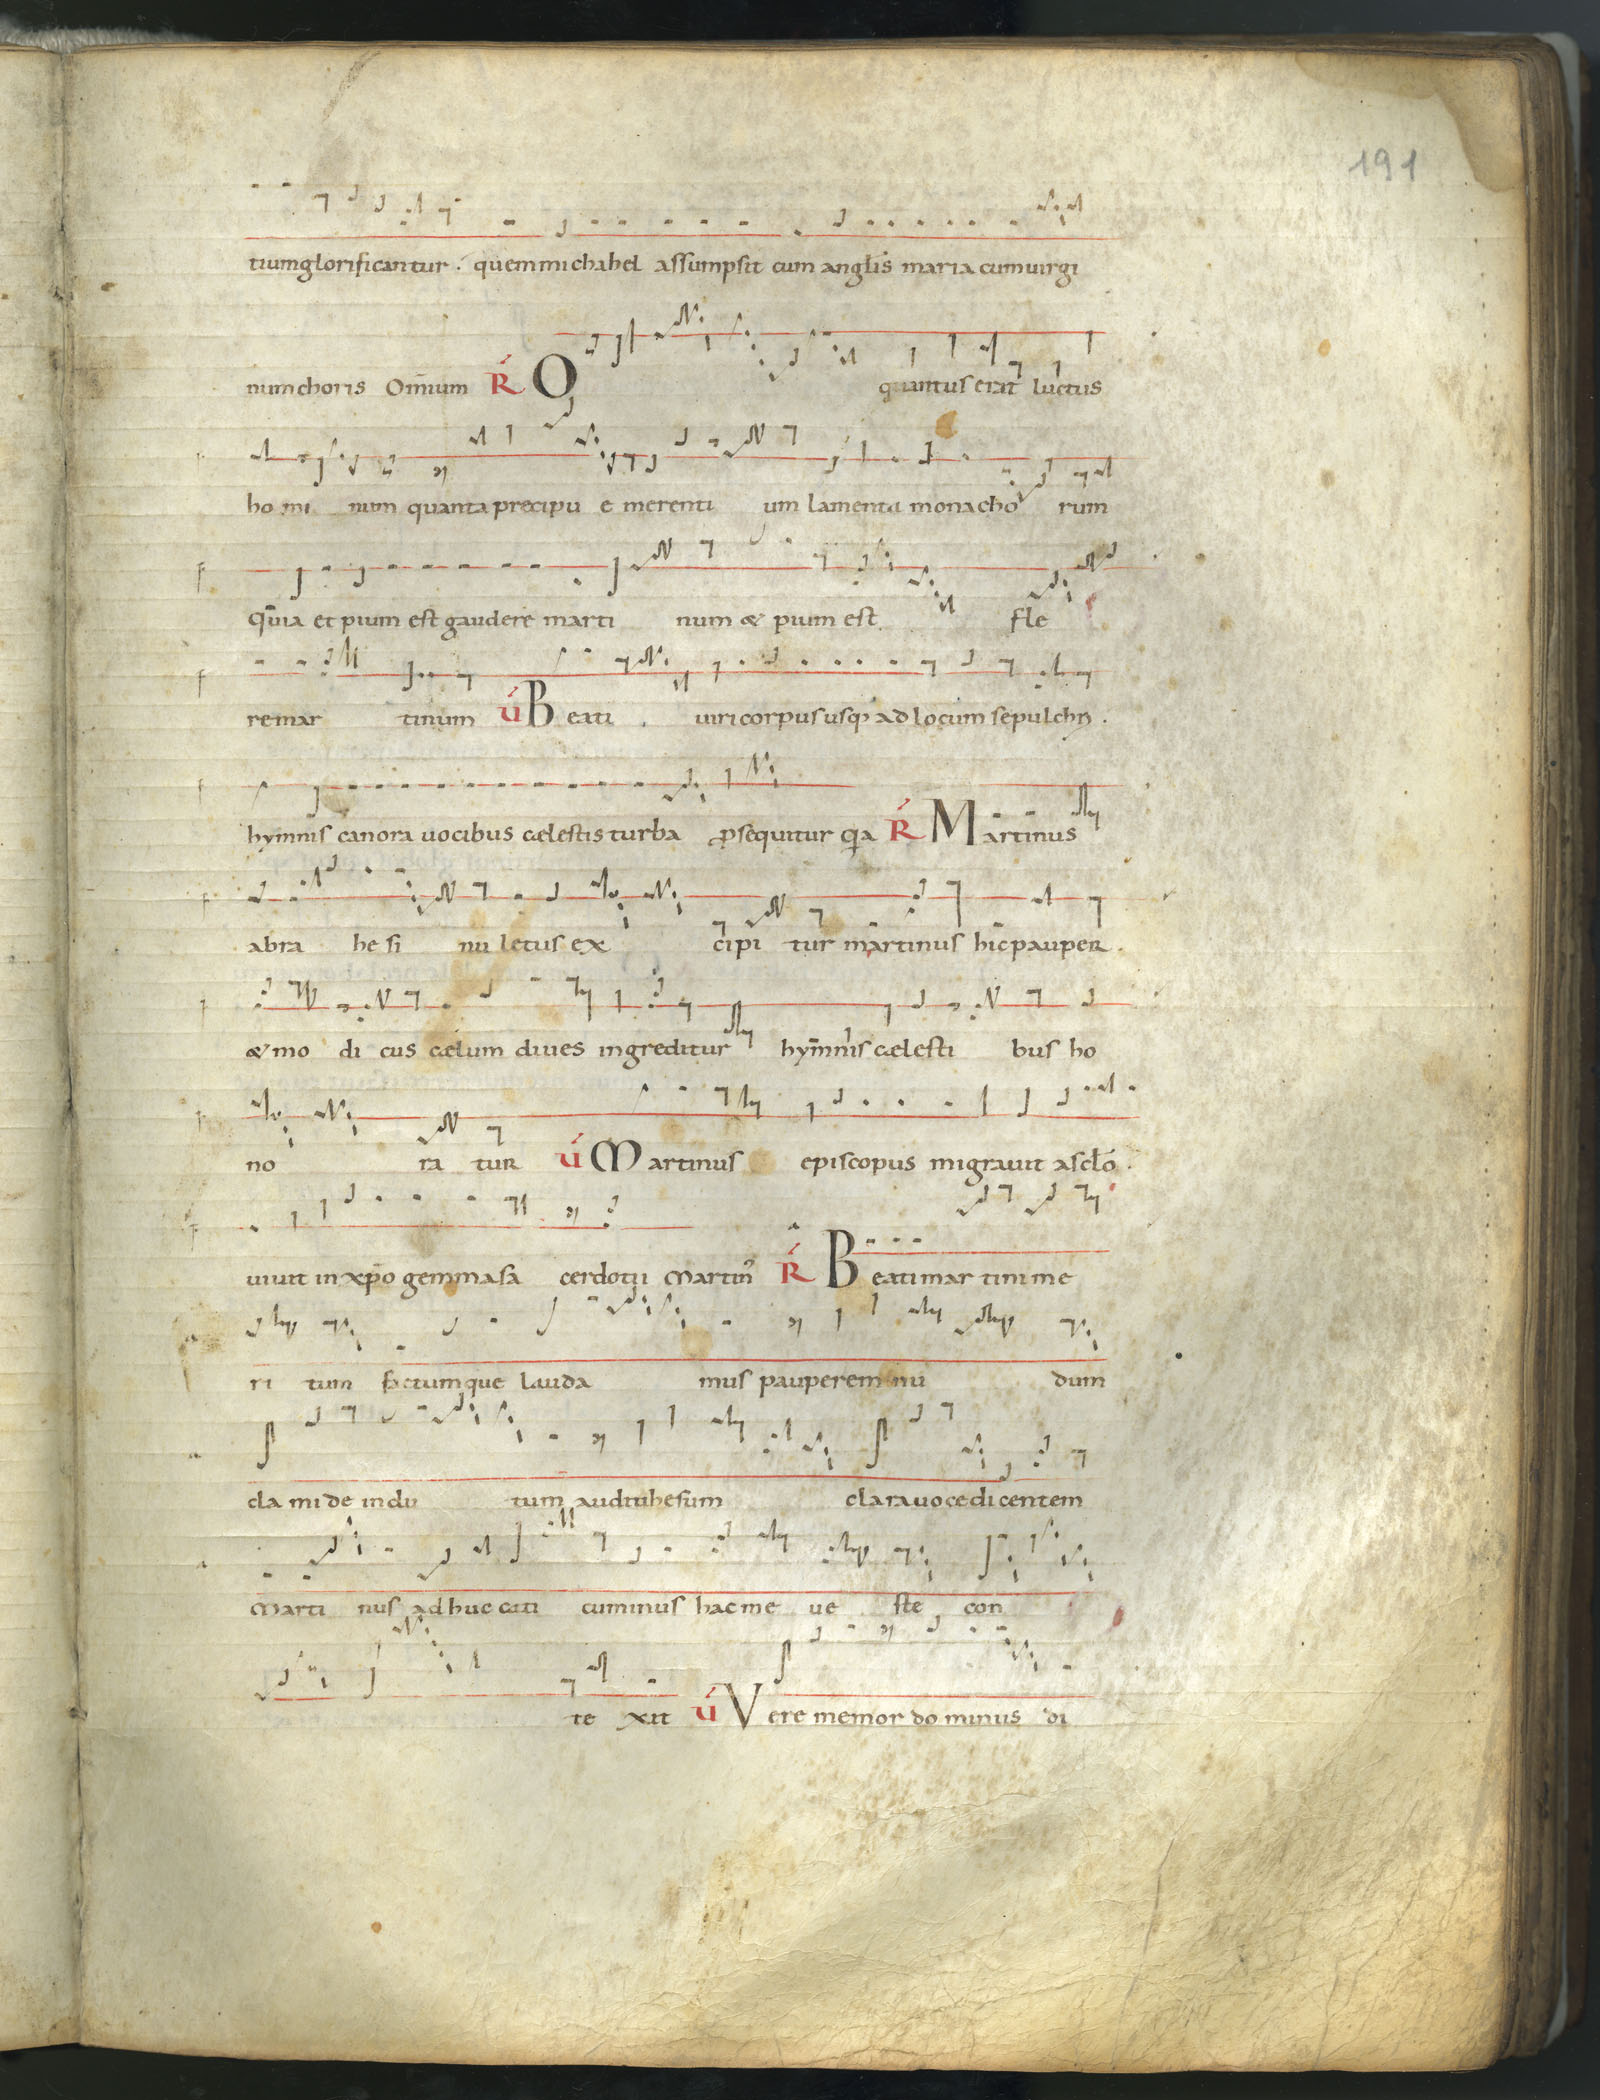 191
tium glorificantur. quem michahel assumpsit cum angl̄is maria cum uirgi
num choris Om̄ium R̃ O quantus erat luctus
ho mi num quanta precipu e merenti um lamenta monacho rum
quia et pium est gaudere marti num & pium est fle
re mar tinum V̓ Beati uiri corpus usq; ad locum sepulchri.
hymnis canora uocibus cęlestis turba ꝓsequitur qia R̃ Martinus
abra he si nu letus ex cipi tur martinus hic pauper.
& mo di cus cęlum diues ingreditur hymnis cęlesti bus ho
no ra tur V̓ Martinus episcopus migrauit a sc̄lo.
uiuit in xp̄o gemma sa cerdotū Martin᾽ R̃ Beati mar tini me
ri tum factumque lauda mus pauperem nu dum
cla mi de indu tum audiu ihesum clara uoce dicentem
Marti nus adhuc cati cuminus hac me ue ste con
te xit V̓ Vere memor do minus di